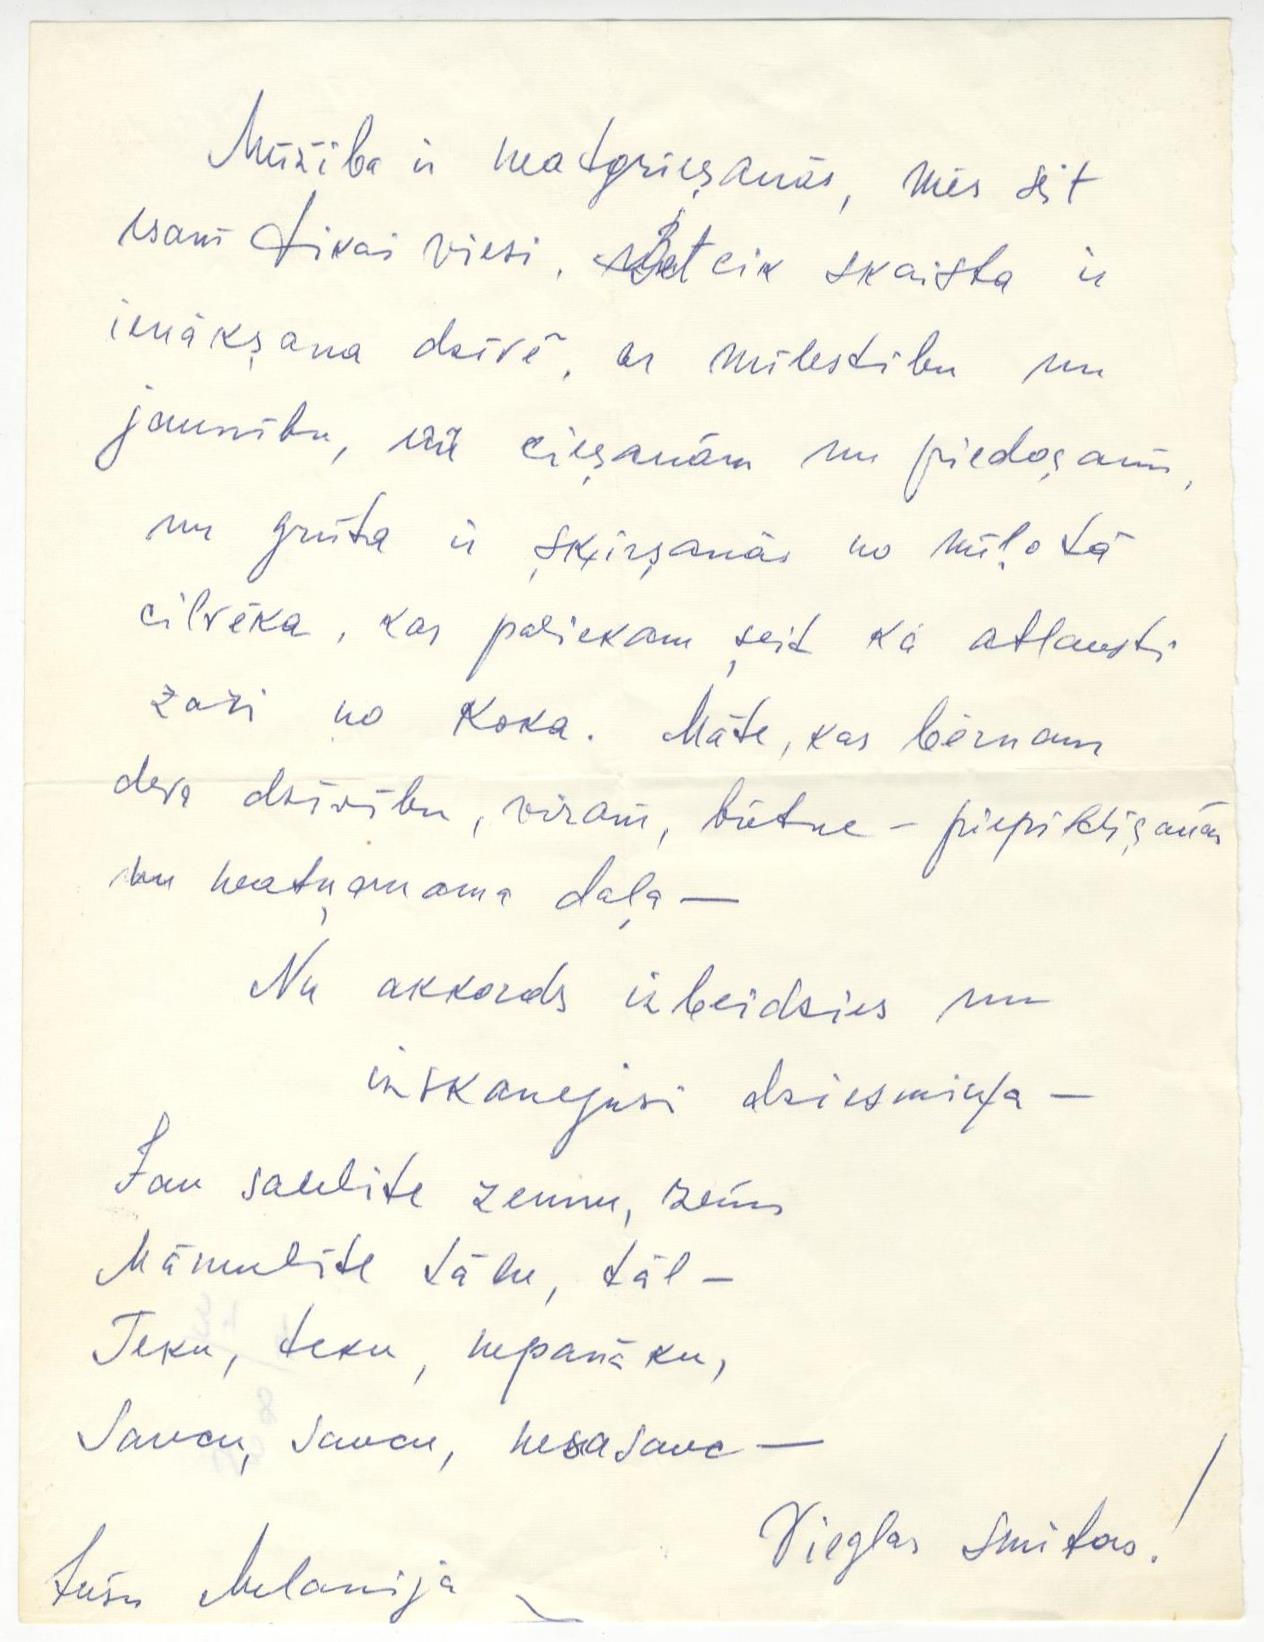 Mūžība ir neatgriešanās, mēs šeit
esam tikai viesi. Bet cik skaista ir
ienākšana dzīvē, ar mīlestību un
jaunību, ciešanām un piedošanu,
un grūta ir šķiršanās no mīļotā
cilvēka, kas paliekam šeit kā atlausti
zari no koka. Māte, kas bērnam
deva dzīvību, vīram, būtne – piepildīšanās
un neatņemama daļa —
Nu akkords izbeidzies un
izskanējusi dziesmiņa —
Jau saulīte zemu, zemu
Māmulīte tālu, tāl –
Teku, teku, nepanāku,
Saucu, saucu, nesasauc —
Vieglas smiltis!
Melanija